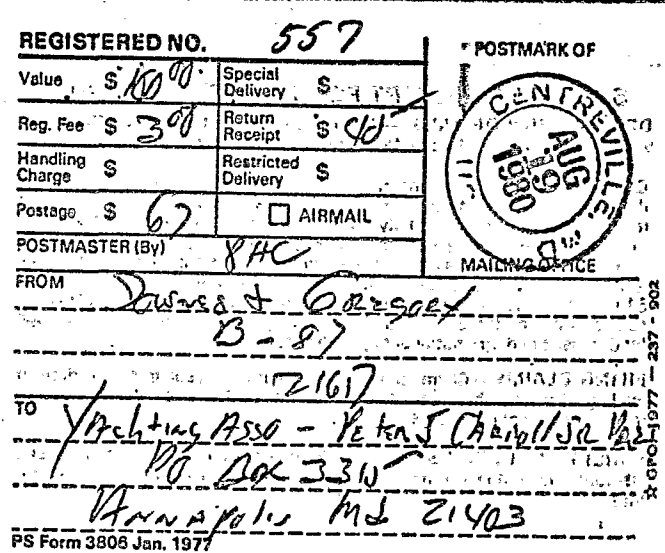 REGISTERED NO. 557
POSTMARK OF
Value $ 100 00
Special Delivery $
Reg. Fee $ 3 00
Return Receipt $
Handling Charge $
Restricted Delivery $
Postage $
AIRMAIL
POSTMASTER (By)
CENTREVILLE
AUG
19
1980
MAILING OFFICE
FROM Downes & Gregory
B-87
21617
TO Yachting Asso - Peter J
PO Box
Annapolis Md 21403
PS Form 3806 Jan. 1977
☆ GPO—1977—237-902